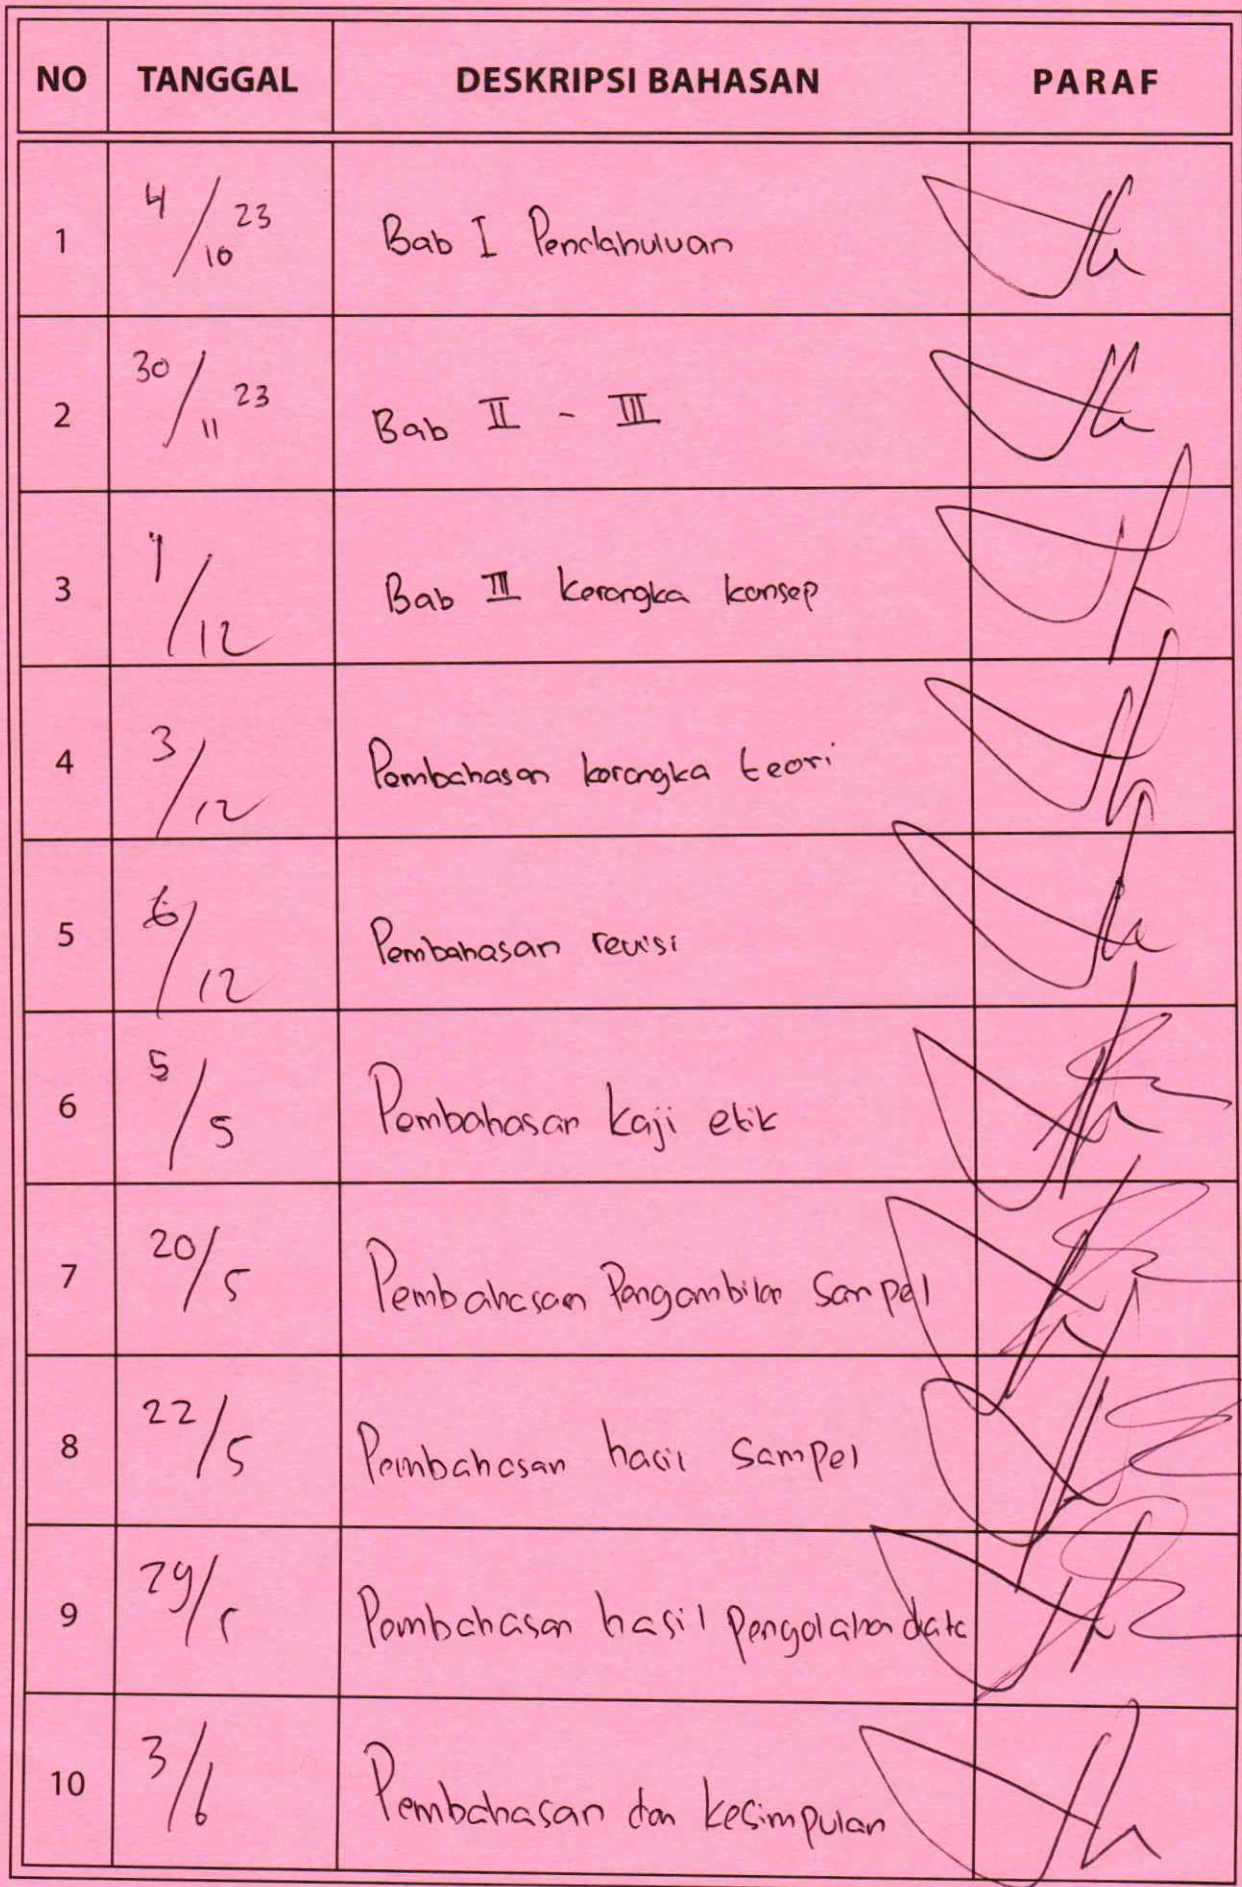 NO TANGGAL DESKRIPSI BAHASAN PARAF
1 4/10 23 Bab I Pendahuluan
2 30/11 23 Bab II - III
3 1/12 Bab III kerangka konsep
4 3/12 Pembahasan kerangka teori
5 6/12 Pembahasan revisi
6 5/5 Pembahasan kaji etik
7 20/5 Pembahasan Pengambilan Sampel
8 22/5 Pembahasan hasil Sampel
9 29/5 Pembahasan hasil pengolahan data
10 3/6 Pembahasan dan kesimpulan